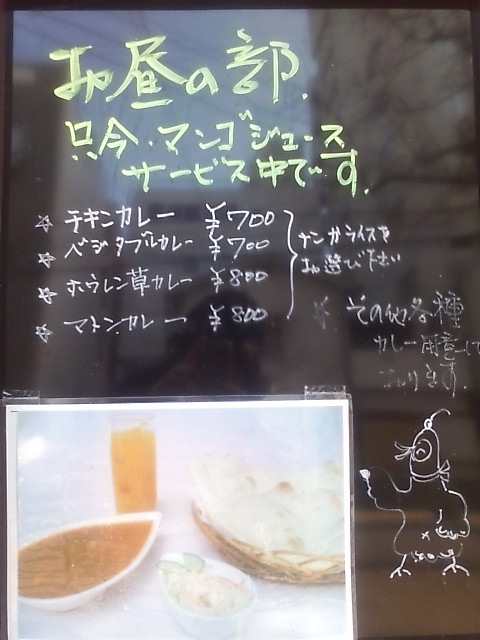 お昼の部.
只今・マンゴジュース
サービス中です.
☆ チキンカレー ¥700
☆ ベジタブルカレー ¥700
☆ ホウレン草カレー ¥800
☆ マトンカレー ¥800
ナンかライスを
お選び下さい
☆ その他各種
カレー用意して
おります.